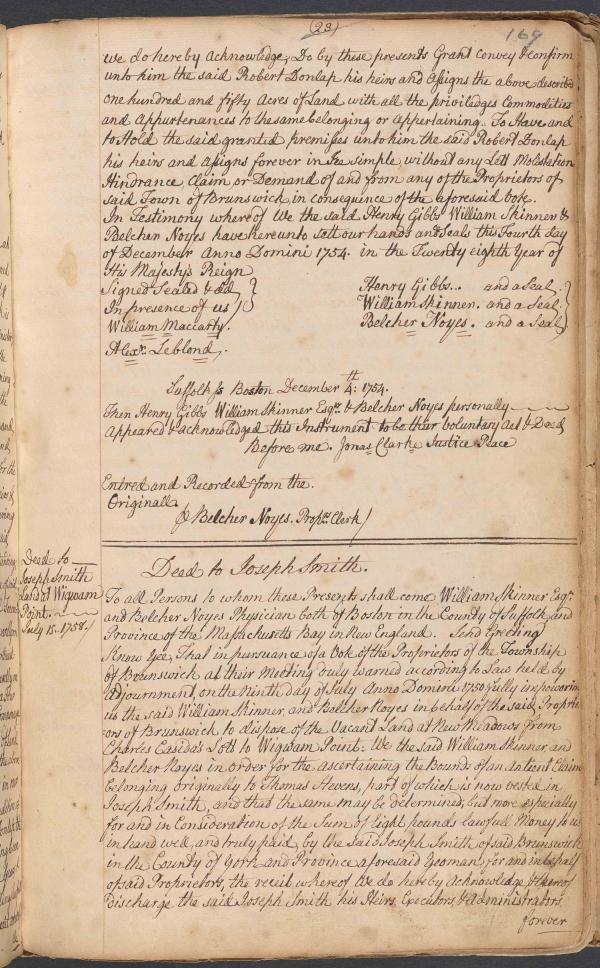 (23)
169
we do hereby Acknowledge, Do by these presents Grant Convey & confirm
unto him the said Robert Donlap his heirs and Assigns the above describd
one hundred and fifty Acres of Land with all the priviledges Commodities
and Appurtenances to the same belonging or Appertaining. To Have and
to Hold the said granted premisses unto him the said Robert Donlap
his heirs and Assigns forever in Fee simple, without any Lett Molestation
Hindrance Claim or Demand of and from any of the Proprietors of
said Town of Brunswick in consequence of the aforesaid Vote.
In Testimony whereof We the said Henry Gibbs William Skinner &
Belcher Noyes have hereunto sett our hands and Seals this Fourth day
of December Anno Domini 1754. in the Twenty eighth Year of
His Majestys Reign
Signed Sealed & dd
In presence of us
William Maccarty.
Alexr. Leblond.
Henry Gibbs... and a Seal.
William Skinner. and a Seal
Belcher Noyes. and a Seal
Suffolk ss Boston December 4th: 1754.
Then Henry Gibbs William Skinner Esqrs. & Belcher Noyes personally
Appeared & acknowledged this Instrument to be their Voluntary Act & Deed
Before me. Jonas Clarke Justice Peace
Entred and Recorded from the
Originall
Belcher Noyes. Proprs. Clerk/
Deed to
Joseph Smith
Land at Wigwam
Point.
July 15. 1758./
Deed to Joseph Smith.
To all Persons to whom these Presents shall come William Skinner Esqr.
and Belcher Noyes Physician both of Boston in the County of Suffolk and
Province of the Massachusetts Bay in New England. Send Greeting
Know Yee, That in pursuance of a Vote of the Proprietors of the Township
of Brunswick at their Meeting duly warned according to Law held by
Adjournment, on the Ninth day of July Anno Domini 1750 fully impowering
us the said William Skinner, and Belcher Noyes in behalf of the said Proprie
ors of Brunswick to dispose of the Vacant Land at New Meadows from
Charles Casida's Lott to Wigwam Point. We the said William Skinner and
Belcher Noyes in order for the ascertaining the Bounds of an antient Claim
belonging originally to Thomas Stevens, part of which is now vested in
Joseph Smith, and that the same may be determined, but more especially
for and in Consideration of the Sum of Eight pounds Lawfull Money to us
in hand well and truly paid by the said Joseph Smith of said Brunswick
in the County of York and Province aforesaid Yeoman, for and in behalf
of said Proprietors, the receit whereof We do hereby Acknowledge & thereof
Discharge the said Joseph Smith his Heirs, Executors, & Administrators
forever